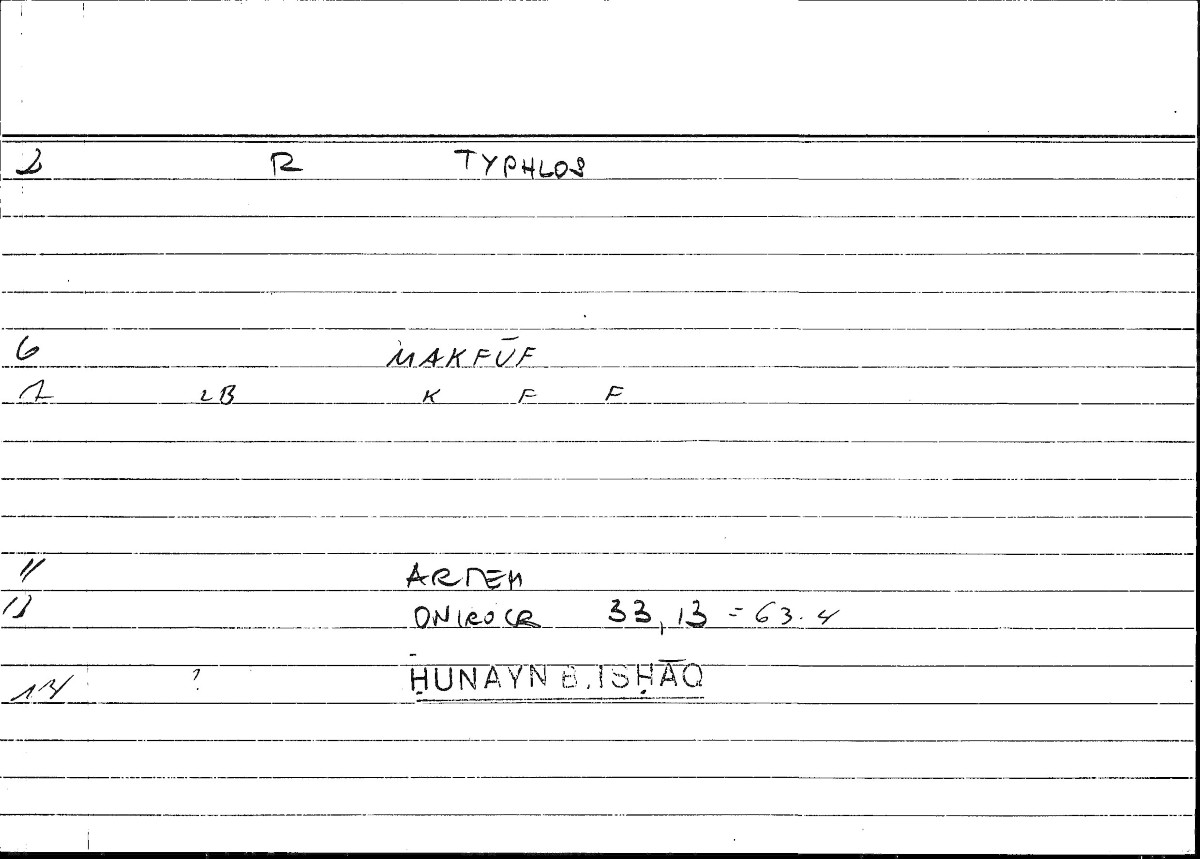 2 R TYPHLOS
6 MAKFŪF
7 LB K F F
11 ARTEM
13 ONIROCR 33,13 = 63.4
14 ? ḤUNAYN B. ISḤĀQ